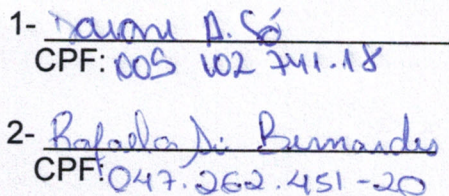 1- A. Só
CPF: 005 102 741.18
2- Rafaela Di Bernardes
CPF: 047.262.451-20